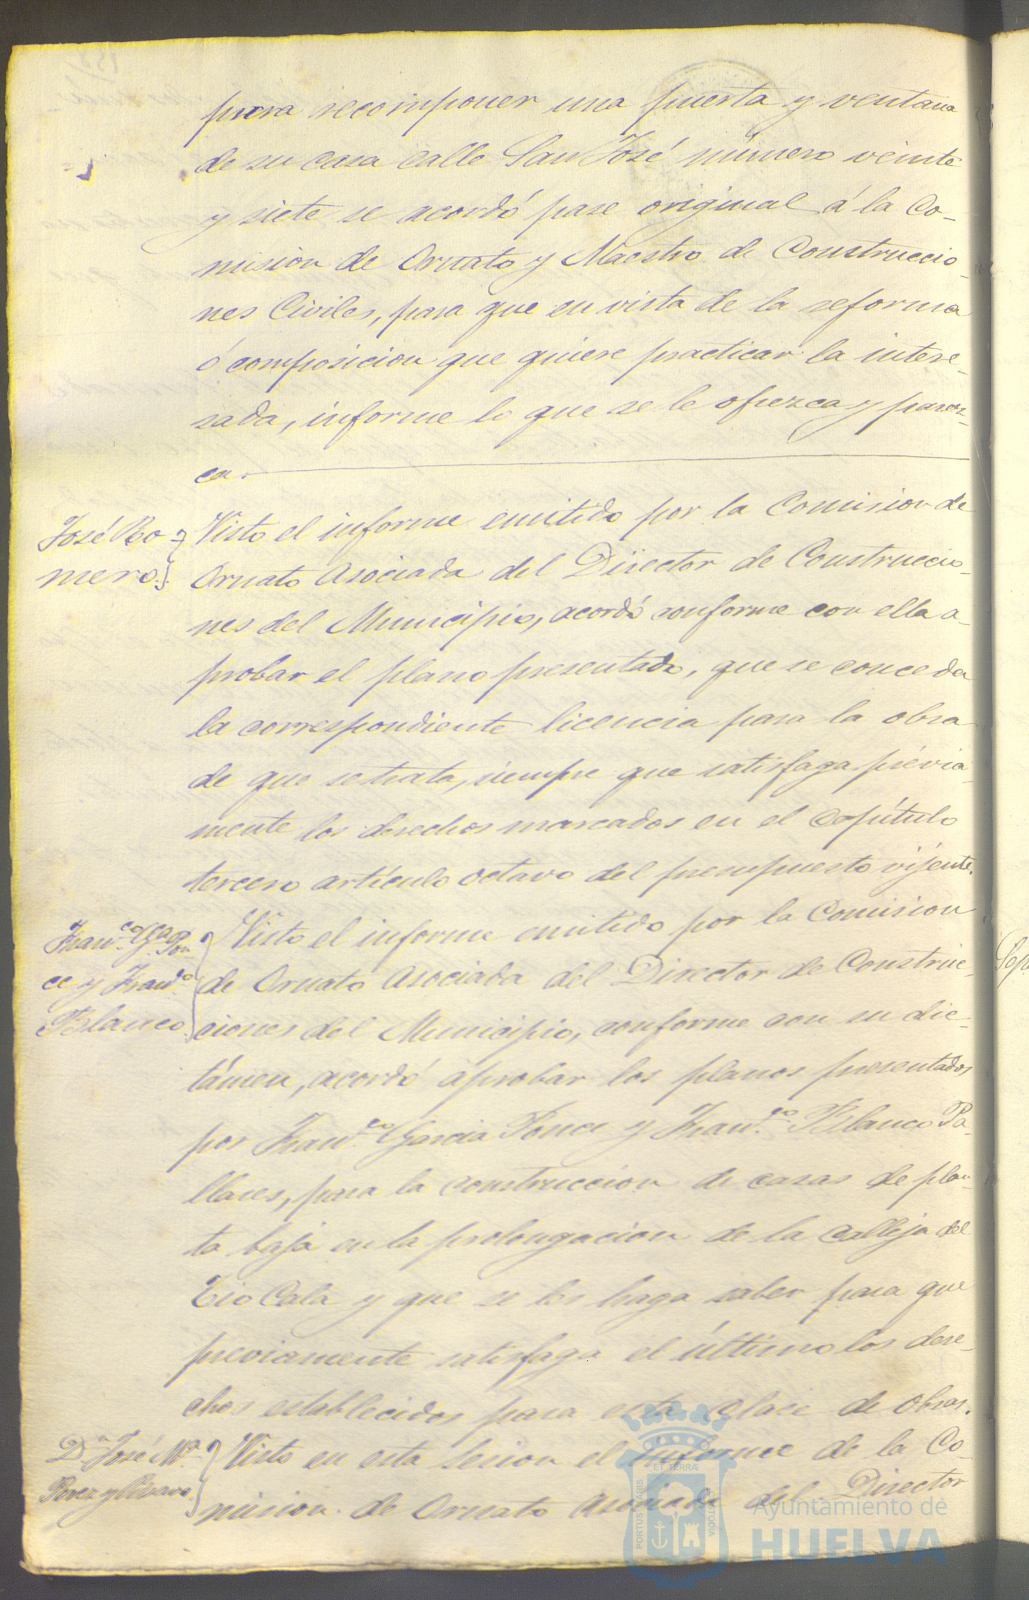 para recomponer una puerta y ventana
de su casa calle San José número veinte
y siete se acordó pase original á la Co-
mision de Ornato y Maestro de Construccio-
nes Civiles, para que en vista de la reforma
ó composicion que quiere practicar la intere-
sada, informe lo que se le ofrezca y parez-
ca.
José Ro-
mero.
Visto el informe emitido por la Comision de
Ornato Asociada del Director de Construccio-
nes del Municipio, acordó conforme con ella a-
probar el plano presentado, que se conceda
la correspondiente licencia para la obra
de que se trata, siempre que satisfaga prévia-
mente los derechos marcados en el capítulo
tercero artículo octavo del presupuesto vijente.
Franco. Ga. Pon-
ce y Franco.
Blanco
Visto el informe emitido por la Comision
de Ornato Asociada del Director de Construc-
ciones del Municipio, conforme con su dic-
támen, acordó aprobar los planos presentados
por Franco. Garcia Ponce y Franco. Blanco Pa-
llares, para la construccion de casas de plan-
ta baja en la prolongacion de la calleja del
Tio Cala y que se les haga saber para que
previamente satisfaga el último los dere-
chos establecidos para esta clase de obras.
Dn. José Ma.
Perez y
Visto en esta sesion el informe de la Co-
mision de Ornato Asociada del Director
Ayuntamiento de
HUELVA